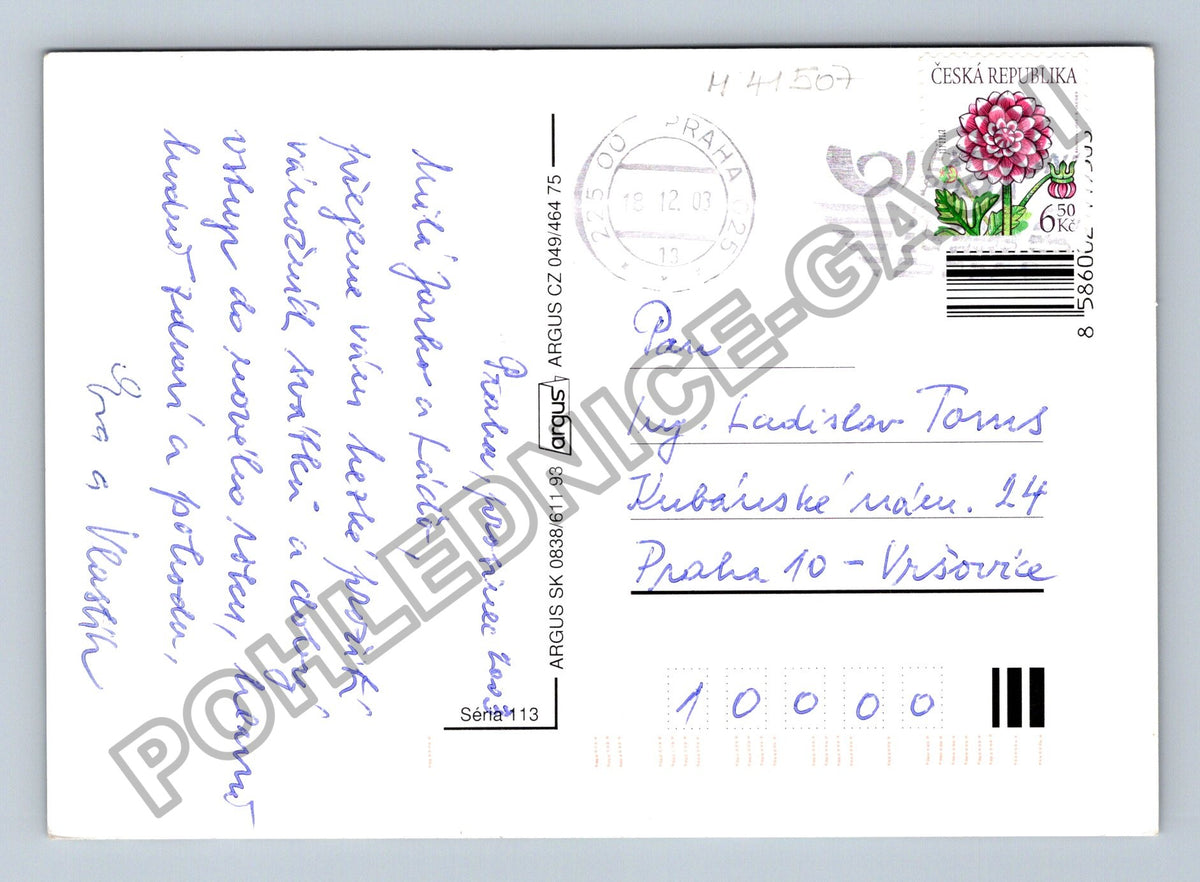 M 41507
ČESKÁ REPUBLIKA
jiřina
6 50
Kč
225 00 PRAHA 025
18.12.03
13
8 586002
Praha, prosinec 2003
Milá Jarko a Láďo,
přejeme vám hezké prožití
vánočních svátků a dobrý
vstup do nového roku, hlavně
hodně zdraví a pohodu,
Eva a Vlastík
ARGUS SK 0838/611 93 argus ARGUS CZ 049/464 75
Séria 113
Pan
Ing. Ladislav Toms
Kubánské nám. 24
Praha 10 - Vršovice
10000
POHLEDNICE-GASH